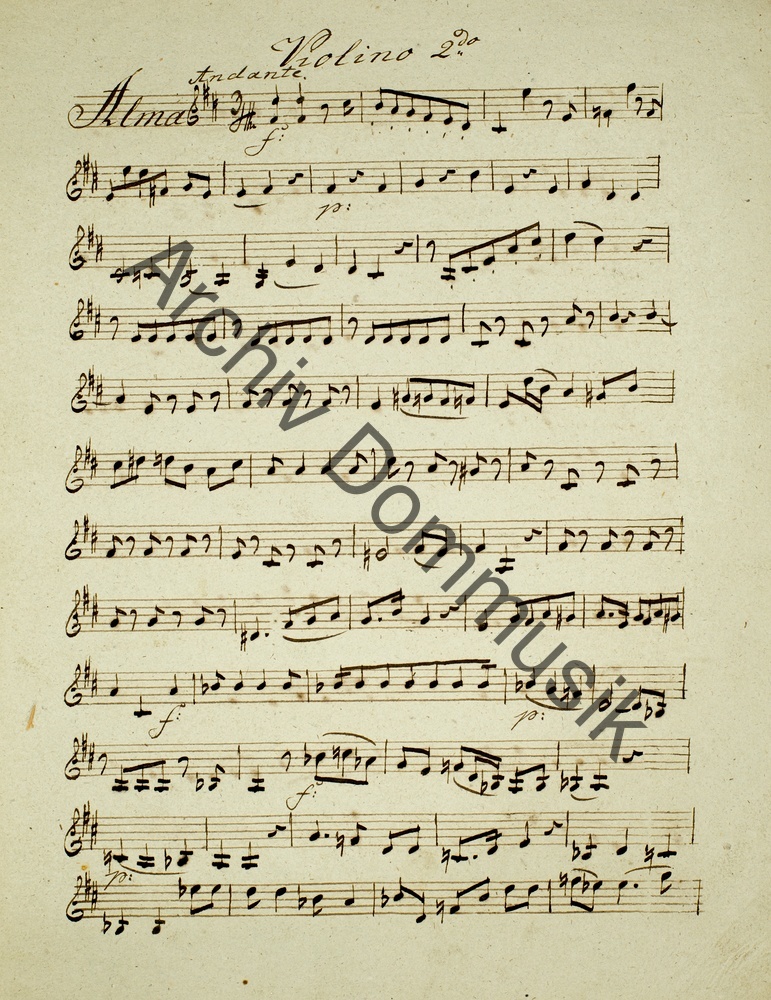 Violino 2do
Andante.
Alma
f:
p:
f:
p:
f:
p:
Archiv Dommusik